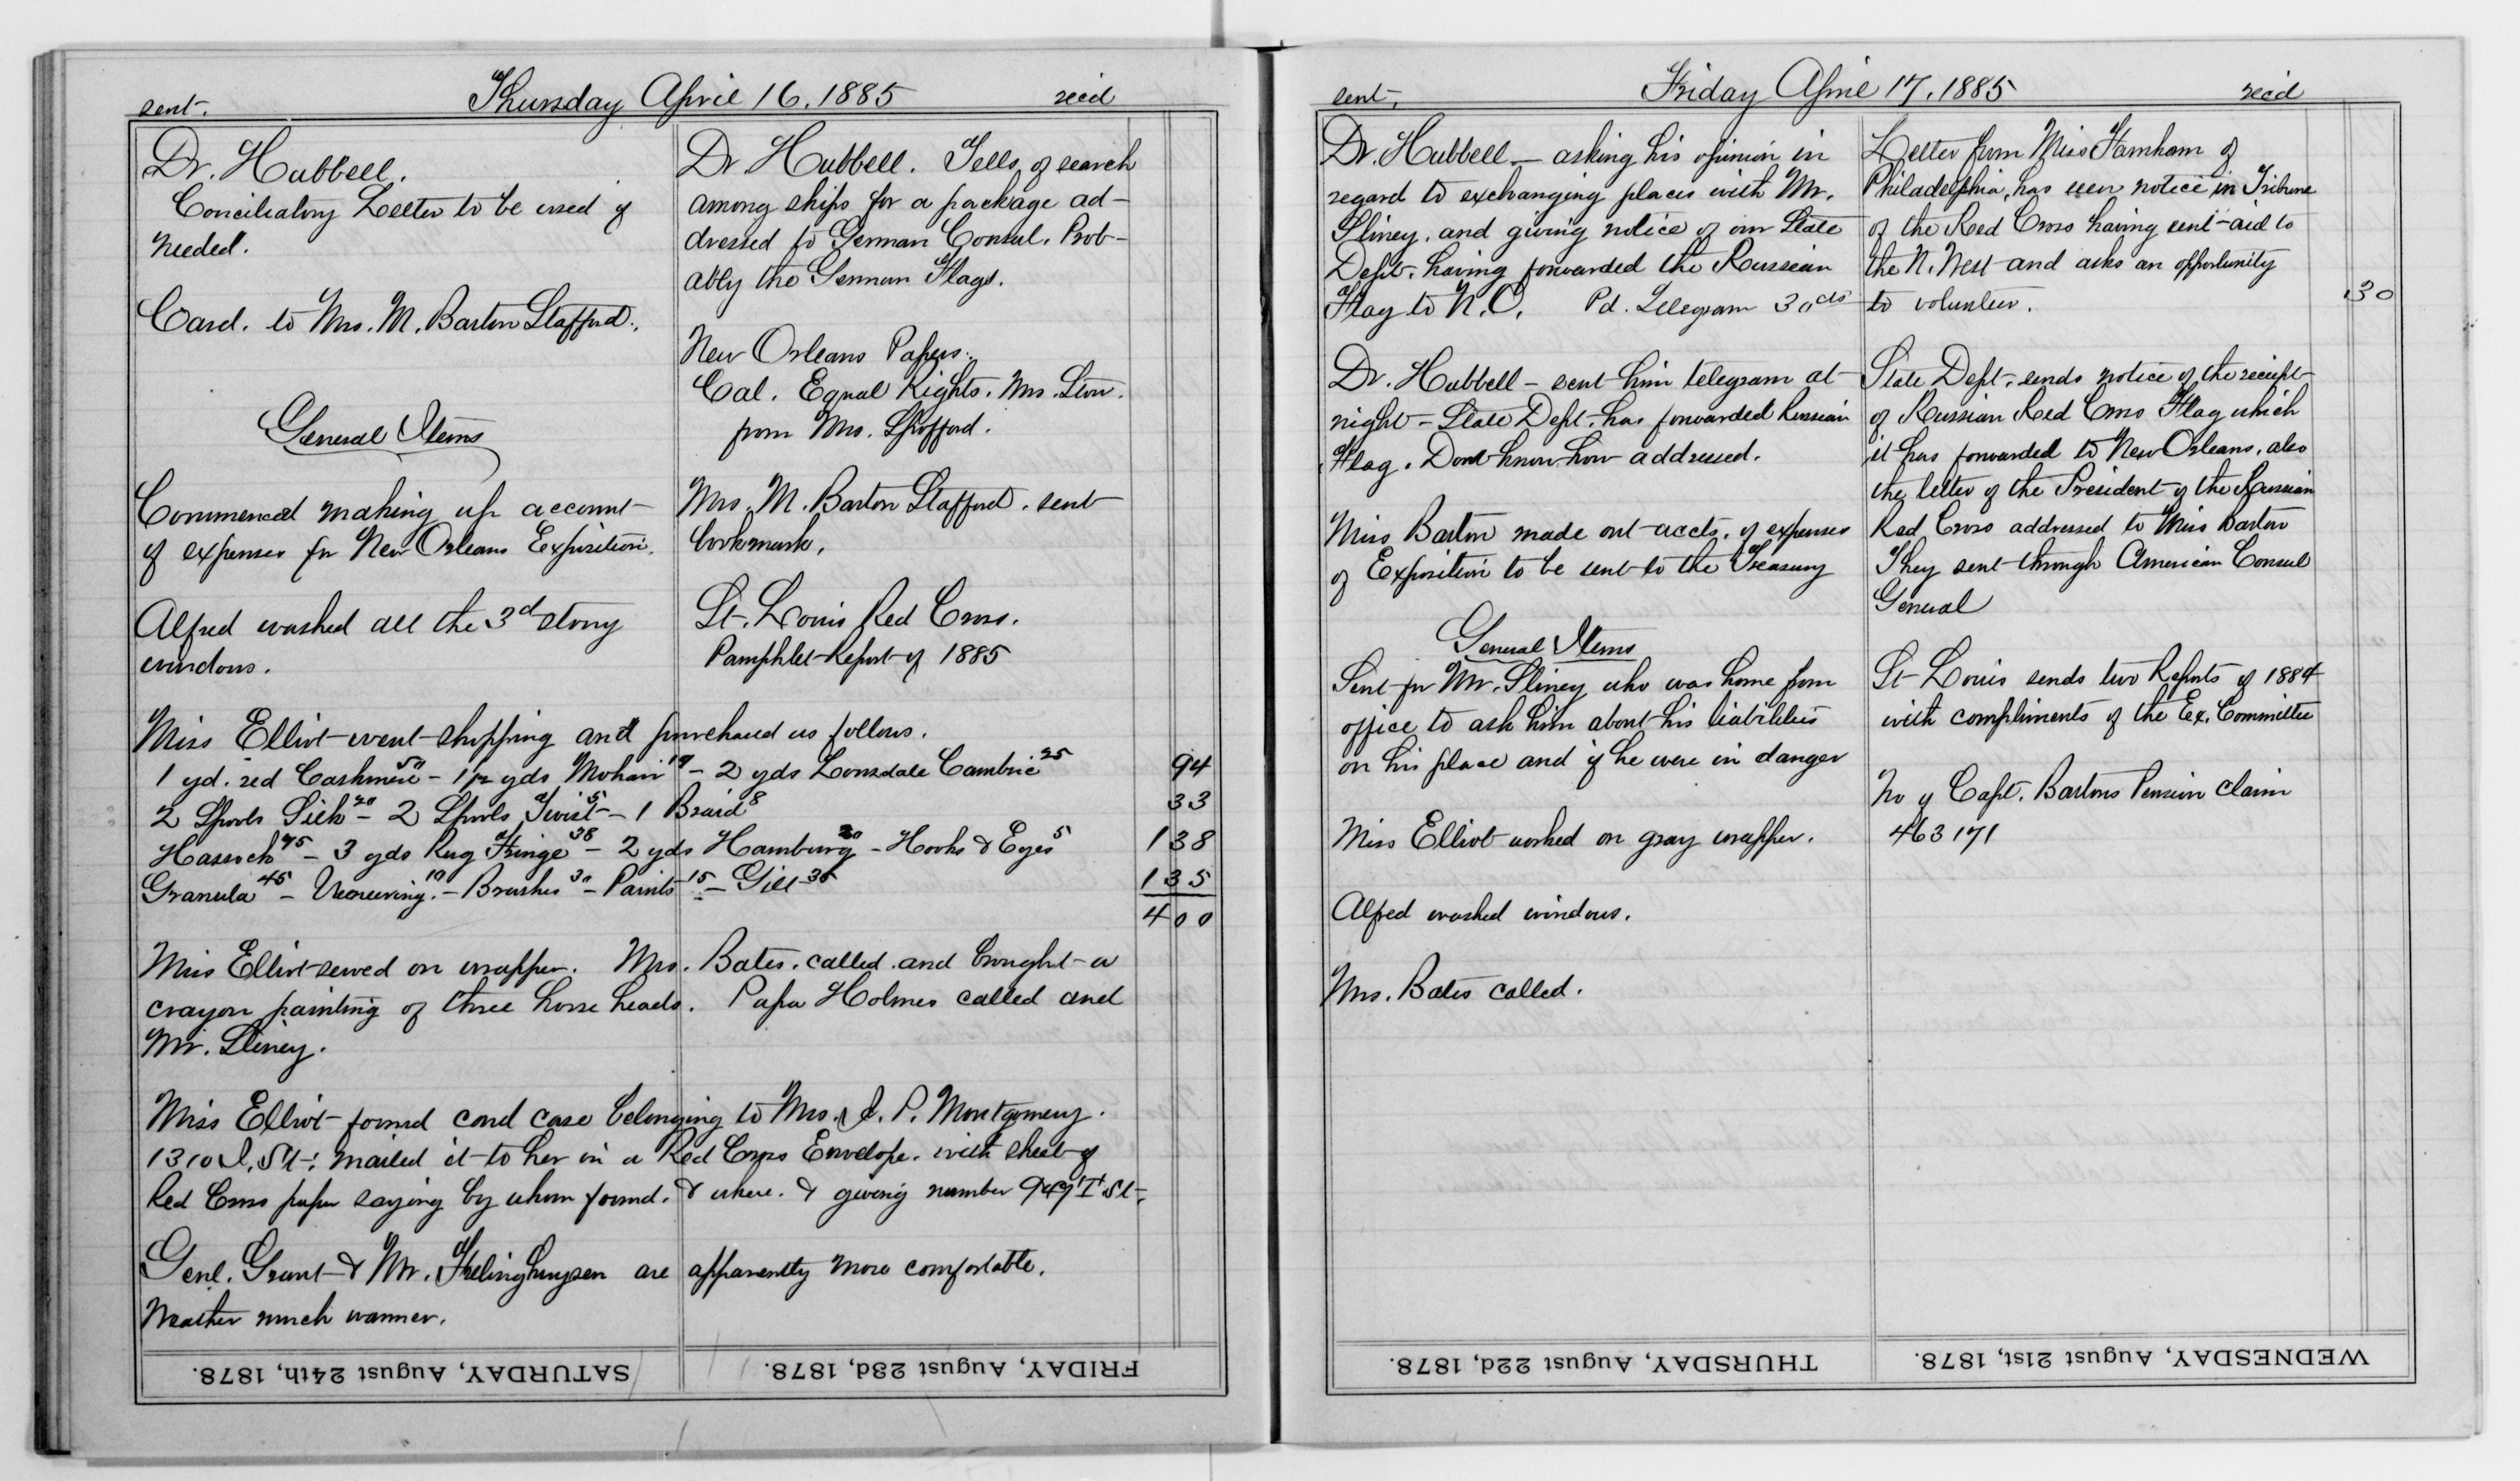 sent.
Thursday April 16, 1885
rec'd
Dr. Hubbell.
Conciliatory Letter to be used if
needed.
Card. to Mrs. M. Barton Stafford.
General Items
Commenced making up account
of expenses for New Orleans Exposition.
Alfred washed all the 3d story
windows.
Dr Hubbell. Tells of search
among ships for a package ad-
dressed to German Consul. Prob-
ably the German Flags.
New Orleans Papers.
Cal. Equal Rights. Mrs. Stow.
from Mrs. Spofford.
Mrs. M. Barton Stafford. sent
bookmark.
St. Louis Red Cross.
Pamphlet Report of 1885
Miss Elliot went shopping and purchased as follows.
1 yd. red Cashmere 50 - 1 1/2 yds Mohair 19 - 2 yds Lonsdale Cambric 25 94
2 Spools Silk 20 - 2 Spools Twist 5 - 1 Braid 8 33
Hassock 75 - 3 yds Rug Fringe 38 - 2 yds Hamburg 20 - Hooks & Eyes 5 1 38
Granula 45 - 10 - Brushes 30 - Paints 15 - Gilt 35 1 35
4 00
Miss Elliot sewed on wrapper. Mrs. Bates. called. and brought a
crayon painting of three horse heads. Papa Holmes called and
Mr. Sliney.
Miss Elliot found card case belonging to Mrs. J. P. Montgomery.
1310 I. St. mailed it to her in a Red Cross Envelope. with sheet of
Red Cross paper saying by whom found. & where. & giving number 947 T St.
Genl. Grant & Mr. Frelinghuysen are apparently more comfortable.
Weather much warmer.
SATURDAY, August 24th, 1878.
FRIDAY, August 23d, 1878.
sent.
Friday April 17. 1885
rec'd
Dr. Hubbell - asking his opinion in
regard to exchanging places with Mr.
Sliney. and giving notice of our State
Dept. having forwarded the Russian
Flag to N.O. Pd. Telegram 30cts
Dr. Hubbell - sent him telegram at
night - State Dept. has forwarded Russian
Flag. Dont know how addressed.
Miss Barton made out accts. of expenses
of Exposition to be sent to the Treasury
General Items
Sent for Mr. Sliney who was home from
office to ask him about his liabilities
on his place and if he were in danger
Miss Elliot worked on gray wrapper.
Alfred washed windows.
Mrs. Bates called.
Letter from Miss Farnham of
Philadelphia, has seen notice in Tribune
of the Red Cross having sent aid to
the N. West and asks an opportunity
to volunteer. 30
State Dept. sends notice of the receipt
of Russian Red Cross Flag which
it has forwarded to New Orleans, also
the letter of the President of the Russian
Red Cross addressed to Miss Barton
They sent through American Consul
General
St Louis sends two Reports of 1884
with compliments of the Ex. Committee
No of Capt. Bartons Pension claim
463171
THURSDAY, August 22d, 1878.
WEDNESDAY, August 21st, 1878.